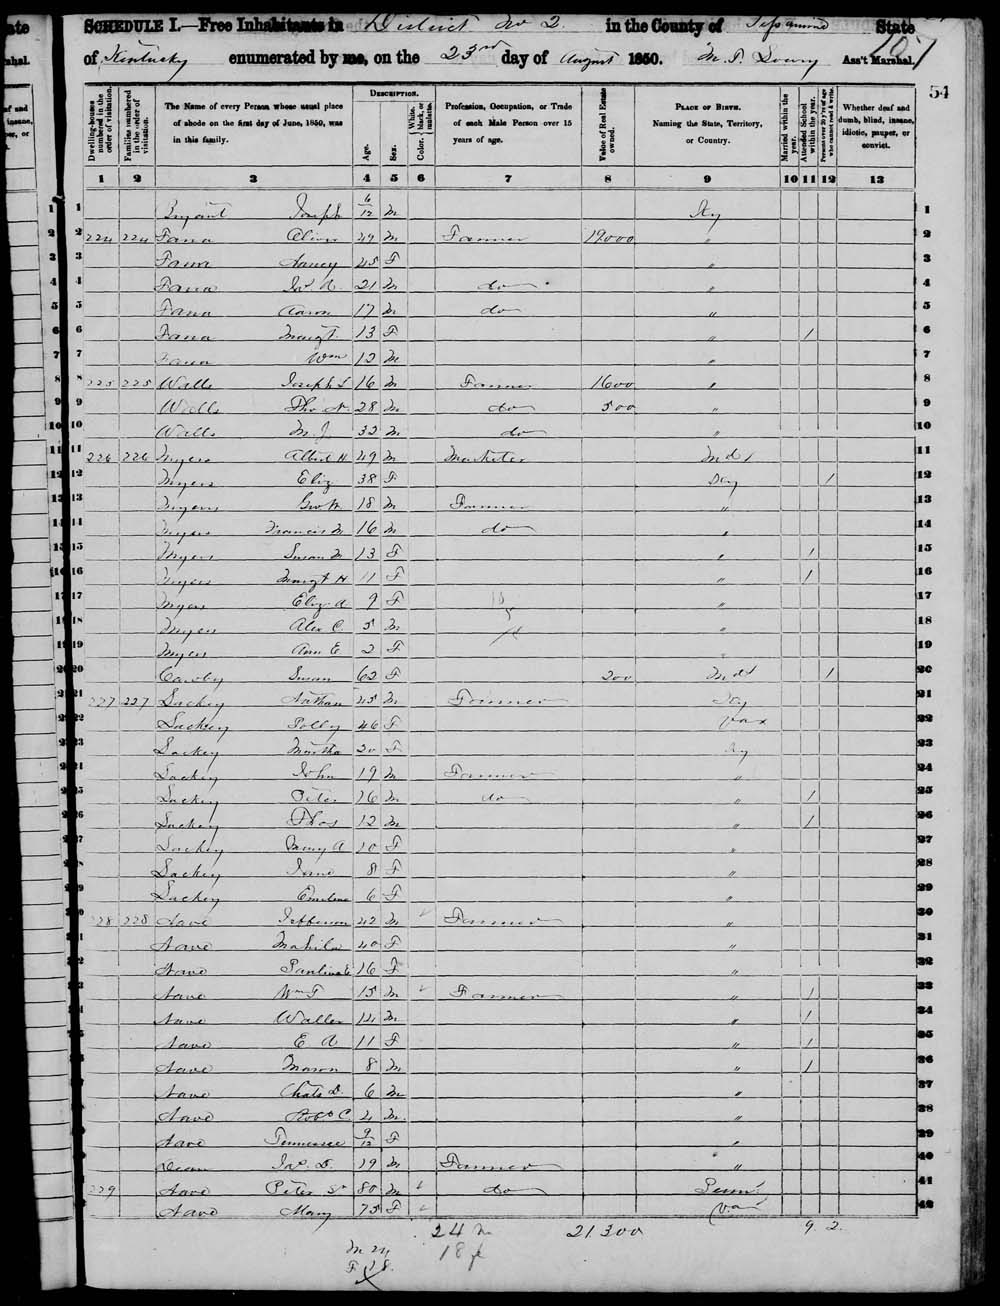 SCHEDULE I.—Free Inhabitants in District No 2. in the County of Jessamine State
of Kentucky enumerated by me, on the 23rd day of August 1850. M. T. Lowry Ass't Marshal.
107
54
Dwelling-houses numbered in the order of visitation.
Families numbered in the order of visitation.
The Name of every Person whose usual place of abode on the first day of June, 1850, was in this family.
DESCRIPTION.
Age.
Sex.
Color. White, black, or mulatto.
Profession, Occupation, or Trade of each Male Person over 15 years of age.
Value of Real Estate owned.
PLACE OF BIRTH. Naming the State, Territory, or Country.
Married within the year.
Attended School within the year.
Persons over 20 y'rs of age who cannot read & write.
Whether deaf and dumb, blind, insane, idiotic, pauper, or convict.
1 2 3 4 5 6 7 8 9 10 11 12 13
1 Bryant Joseph 6/12 M Ky 1
2 224 224 Fana Oliver 49 M Farmer 19000 " 2
3 Fana Nancy 45 F " 3
4 Fana Jas A. 21 M do " 4
5 Fana Aaron 17 M do " 5
6 Fana Margt 13 F " / 6
7 Fana Wm 12 M " 7
8 225 225 Walls Joseph S 16 M Farmer 1600 " 8
9 Walls Tho N. 28 M do 500 " 9
10 Walls M J 32 M do " 10
11 226 226 Myers Albert H 49 M Marketer Md 11
12 Myers Eliz 38 F Ky / 12
13 Myers Geo W. 18 M Farmer " 13
14 Myers Francis M 16 M do " 14
15 Myers Susan M 13 F " / 15
16 Myers Margt H 11 F " / 16
17 Myers Eliz A 9 F " 17
18 Myers Alex C. 5 M " 18
19 Myers Ann E 2 F " 19
20 Cawby Susan 62 F 200 Md / 20
21 227 227 Lackey Nathan 45 M Farmer Ky 21
22 Lackey Polly 46 F Va 22
23 Lackey Martha 20 F Ky 23
24 Lackey John 19 M Farmer " 24
25 Lackey Peter 16 M do " / 25
26 Lackey Thos 12 M " / 26
27 Lackey Mary A 10 F " 27
28 Lackey Jane 8 F " 28
29 Lackey Emeline 6 F " 29
30 228 228 Nave Jefferson 42 M Farmer " 30
31 Nave Mahila 40 F " 31
32 Nave Paulina E 16 F " 32
33 Nave Wm T 15 M Farmer " / 33
34 Nave Waller 14 M " / 34
35 Nave E A 11 F " / 35
36 Nave Mason 8 M " / 36
37 Nave Chas D. 6 M " 37
38 Nave Robt C 4 M " 38
39 Nave Tennessee 9/12 F " 39
40 Dean Jas. D. 19 M Farmer " 40
41 229 Nave Peter Sr 80 M do Penn 41
42 Nave Mary 75 F Va 42
24 M 21300 9. 2.
18 F
M 24
F 18.